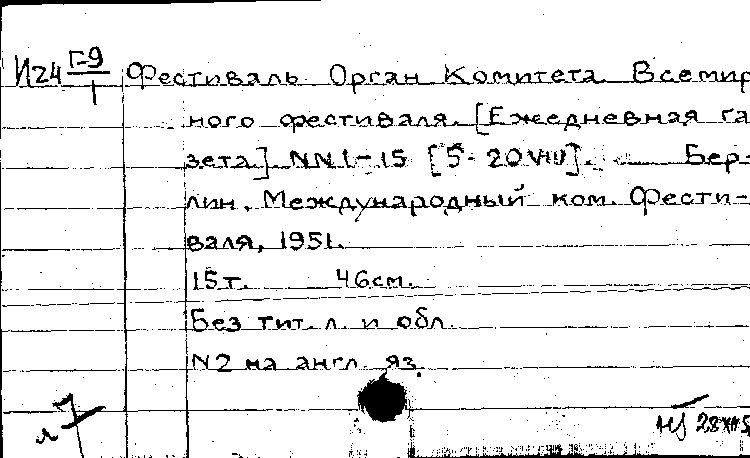 И24 Г-9/1 Фестиваль. Орган Комитета Всемир
ного фестиваля. [Ежедневная га
зета]. NN1-15 [5-20 VIII]. Бер-
лин, Международный ком. Фести-
валя, 1951.
15т. 46см.
Без тит. л. и обл.
N2 на англ. яз.